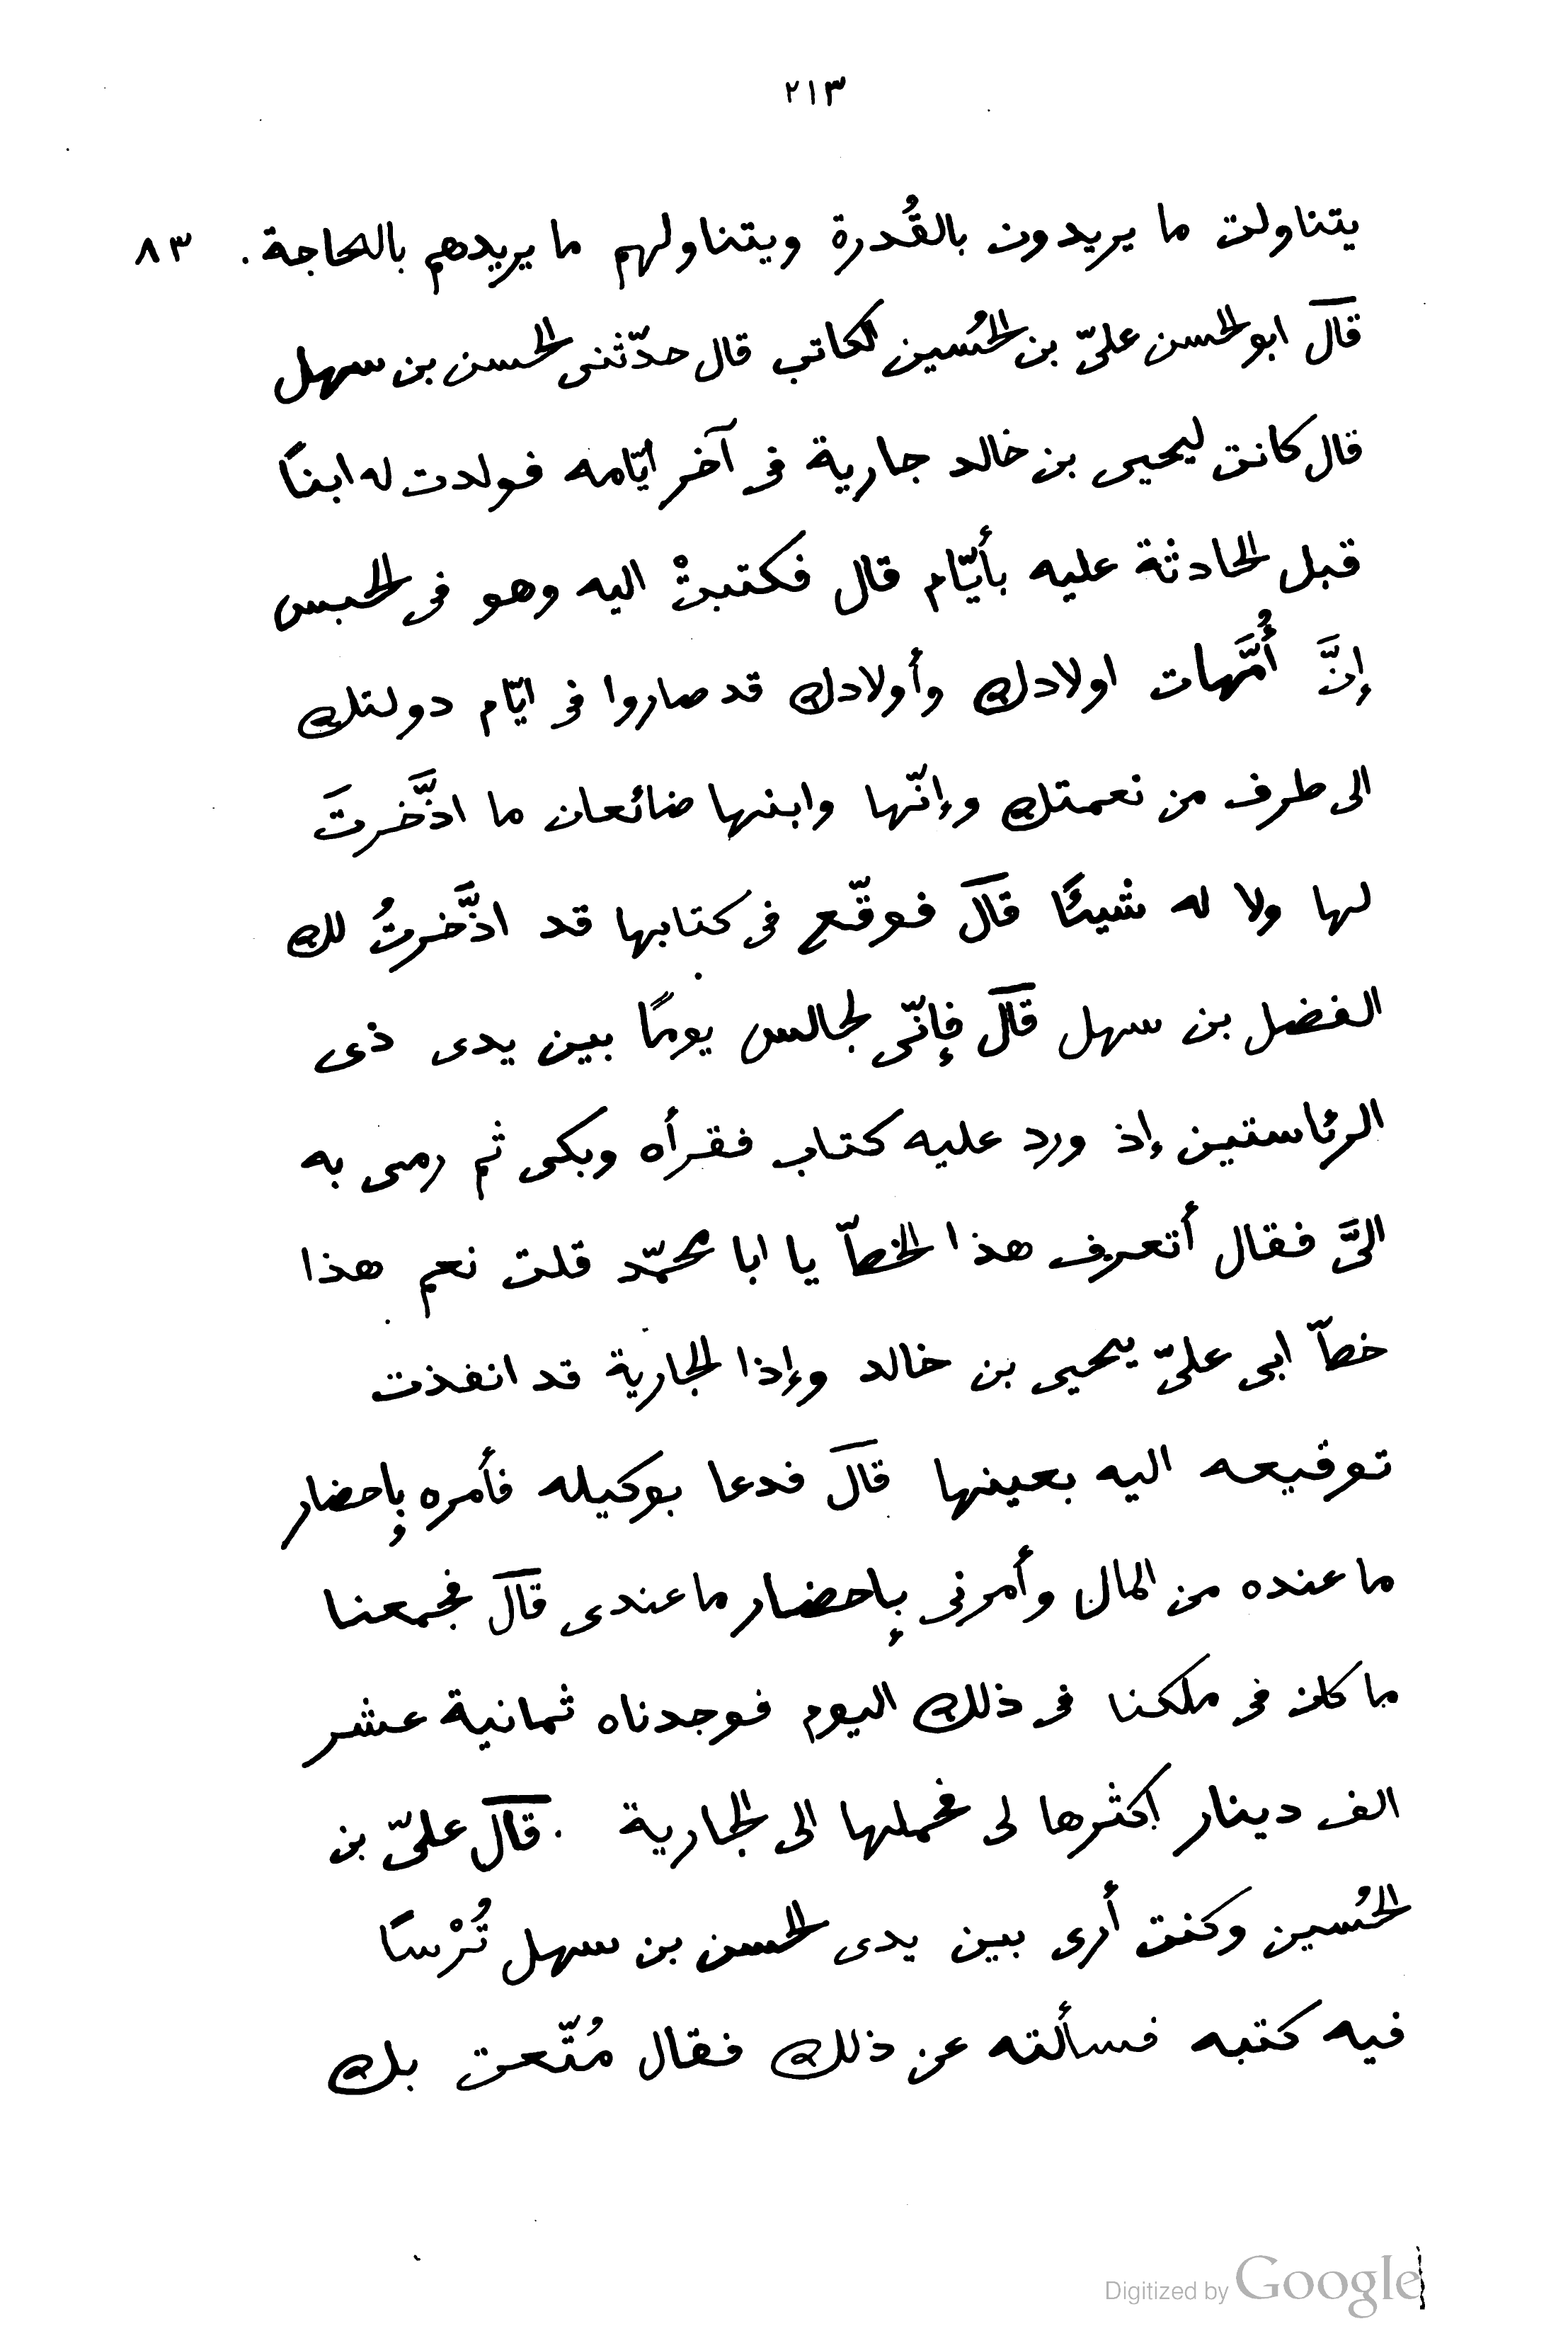 ٢١٣
يتناولن ما يريدون بالقُدرة ويتناولهم ما يريدهم بالحاجة. ٨٣
قال ابو الحسن علىّ بن الحُسين الكاتب قال حدّثنى الحسن بن سهل
قال كانت ليحيى بن خالد جارية فى آخر ايّامه فولدت له ابنًا
قبل الحادثة عليه بأيّام قال فكتبتْ اليه وهو فى الحبس
إنَّ أُمَّهات اولادك وأولادك قد صاروا فى ايّام دولتك
الى طرف من نعمتك وإنّها وابنها ضائعان ما اذَّخرتَ
لها ولا له شيئًا قال فوقّع فى كتابها قد اذَّخرتُ لك
الفضل بن سهل قال فإنّى لجالس يومًا بين يدى ذى
الرئاستين إذ ورد عليه كتاب فقرأه وبكى ثم رمى به
الىَّ فقال أتعرف هذا الخطّ يا ابا محمّد قلت نعم هذا
خطّ ابى علىّ يحيى بن خالد وإذا الجارية قد انفذت
توقيعه اليه بعينها قال فدعا بوكيله فأمره بإحضار
ما عنده من المال وأمرنى بإحضار ما عندى قال فجمعنا
ما كان فى ملكنا فى ذلك اليوم فوجدناه ثمانية عشر
الف دينار اكثرها لى فحملها الى الجارية . قال علىّ بن
الحُسين وكنت أرى بين يدى الحسن بن سهل تُرْسًا
فيه كتبه فسألته عن ذلك فقال مُتّعت بك
Digitized by Google